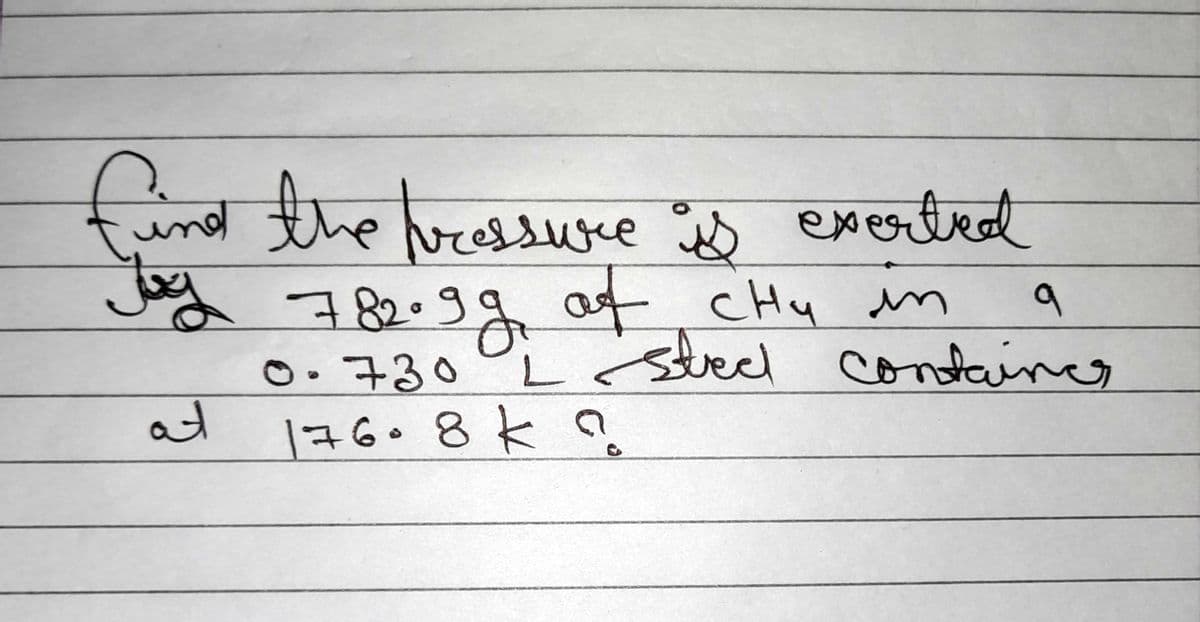 find the pressure is exerted
by 782.9g of CH4 in a
0.730 L steel container
at 176.8 k ?